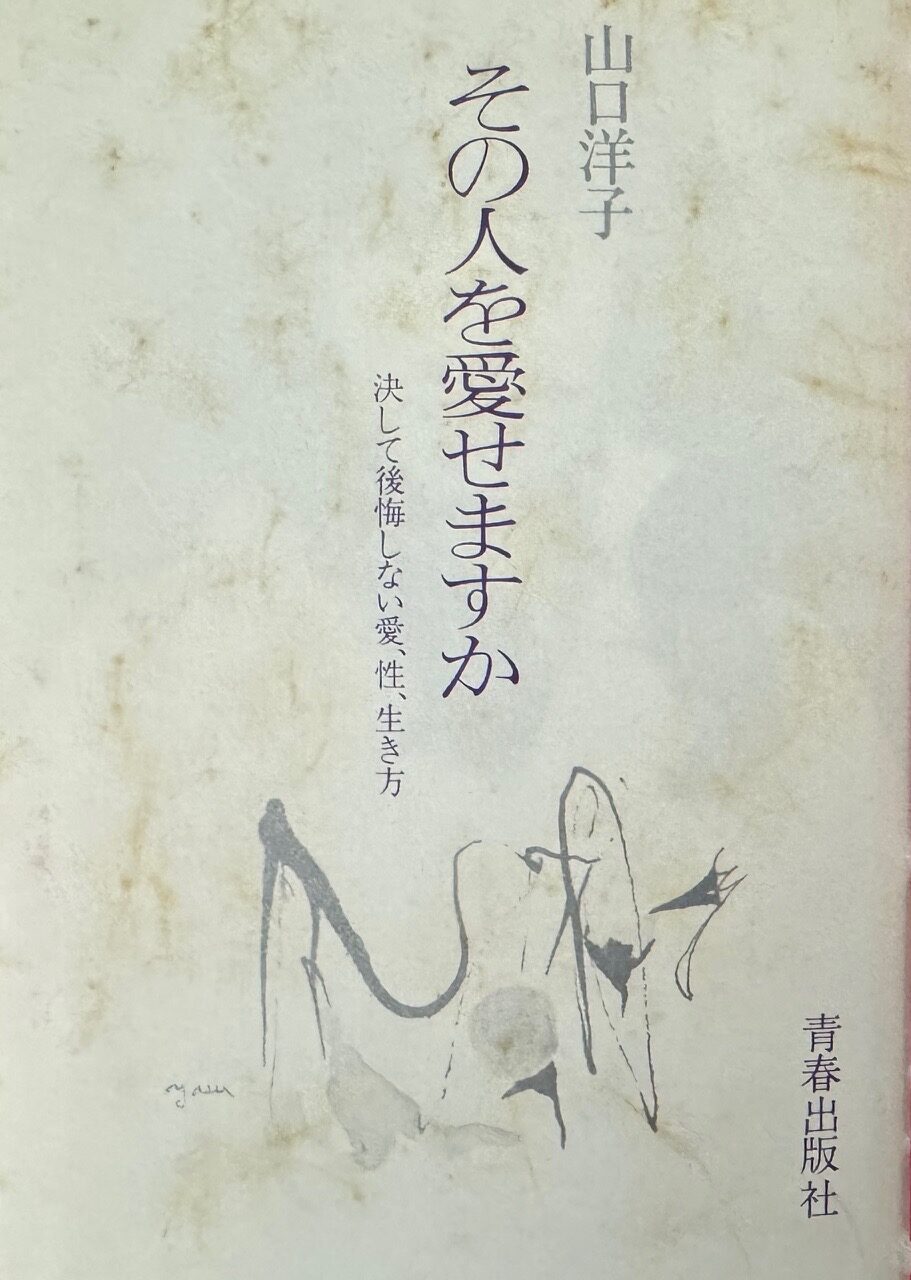 山口洋子
その人を愛せますか
決して後悔しない愛、性、生き方
青春出版社